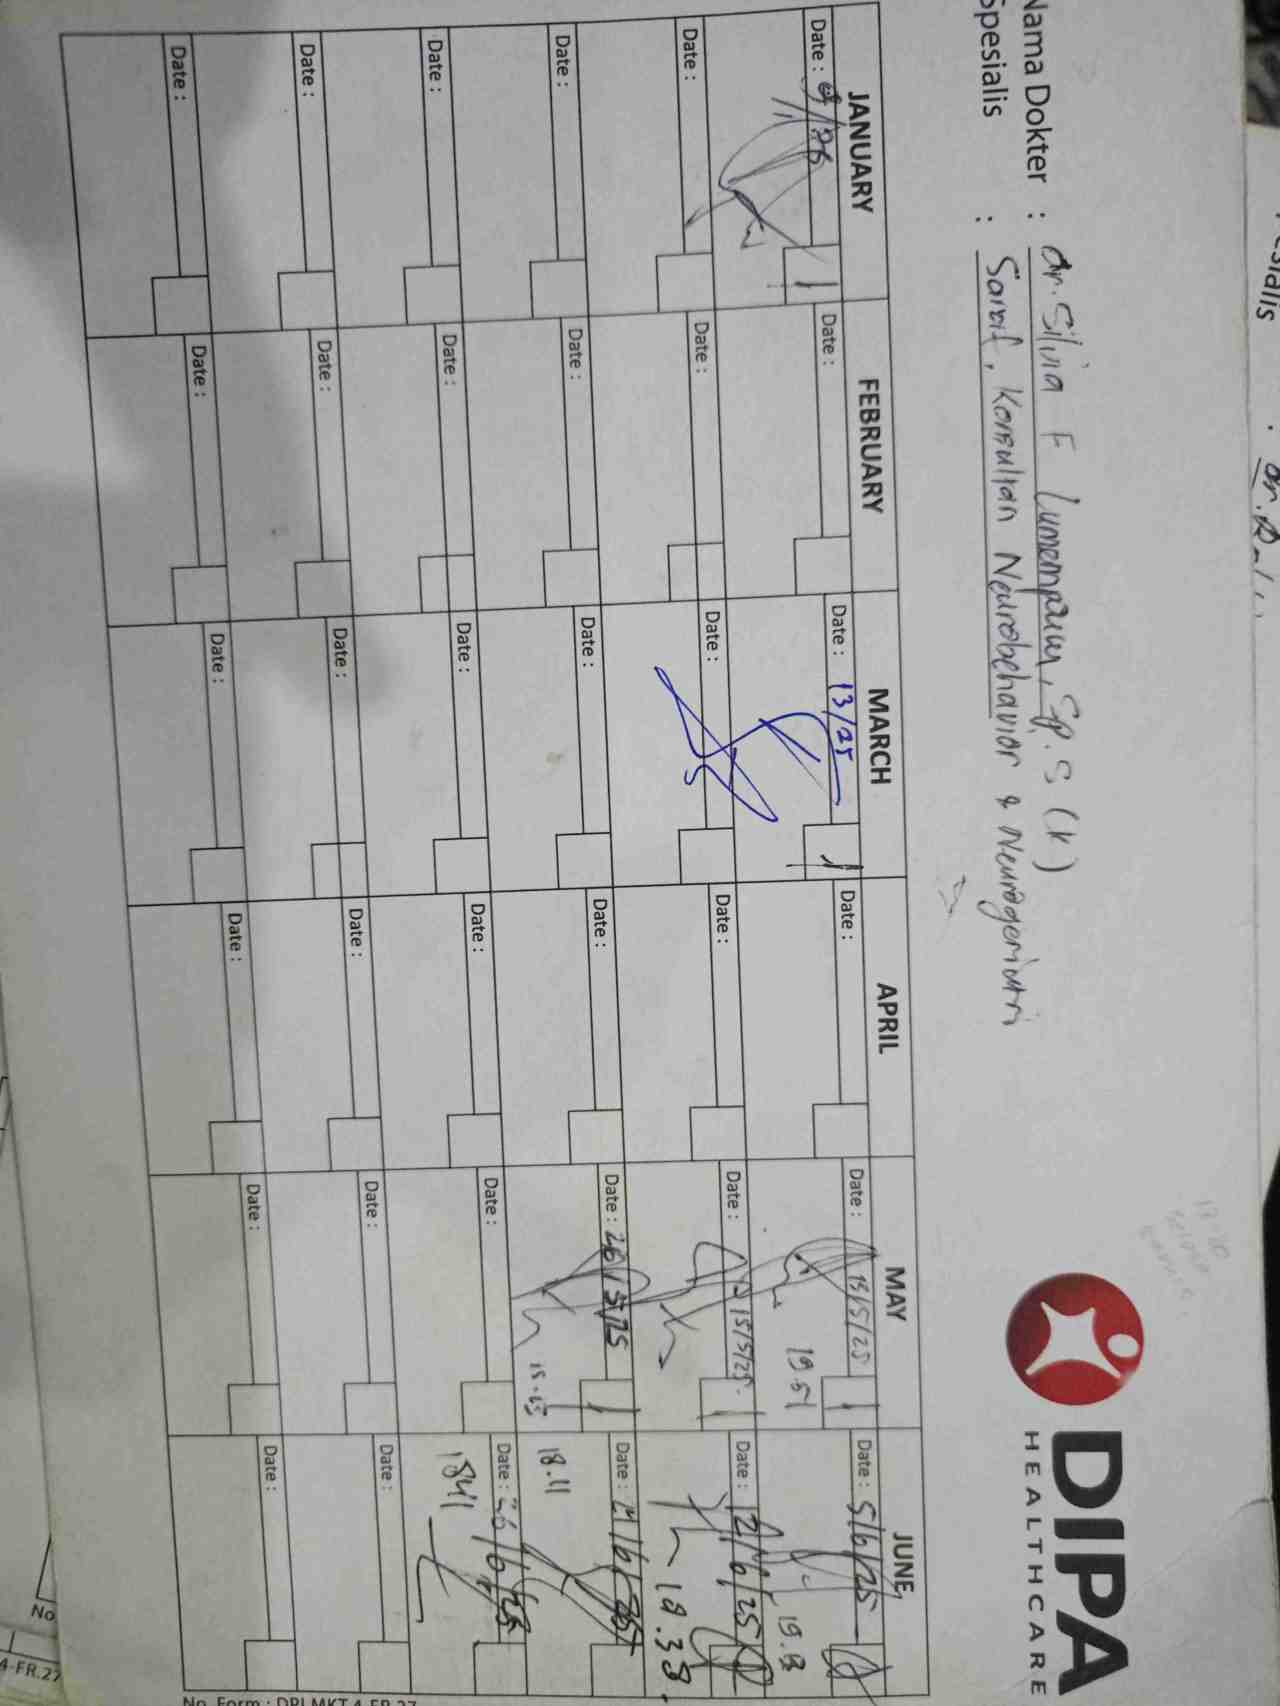 DIPA
HEALTHCARE
Nama Dokter : dr. Silvia F Lumempouw, Sp. S (K)
Spesialis : Saraf, Konsultan Neurobehavior & Neurogeriatri
JANUARY FEBRUARY MARCH APRIL MAY JUNE
Date : Date : Date : 13/25 Date : Date : 13/5/25 Date : 5/6/25
1 1 1
19.51
Date : Date : Date : Date : Date : 15/5/25 Date : 12/6/25
1
18.38
Date : Date : Date : Date : Date : 26/5/25 Date :
1
18.11
Date : Date : Date : Date : Date : Date : 26/6/25
1841
Date : Date : Date : Date : Date : Date :
Date : Date : Date : Date : Date : Date :
No. Form : DPI.MKT.4-FR.27
sialis
No
4-FR.27